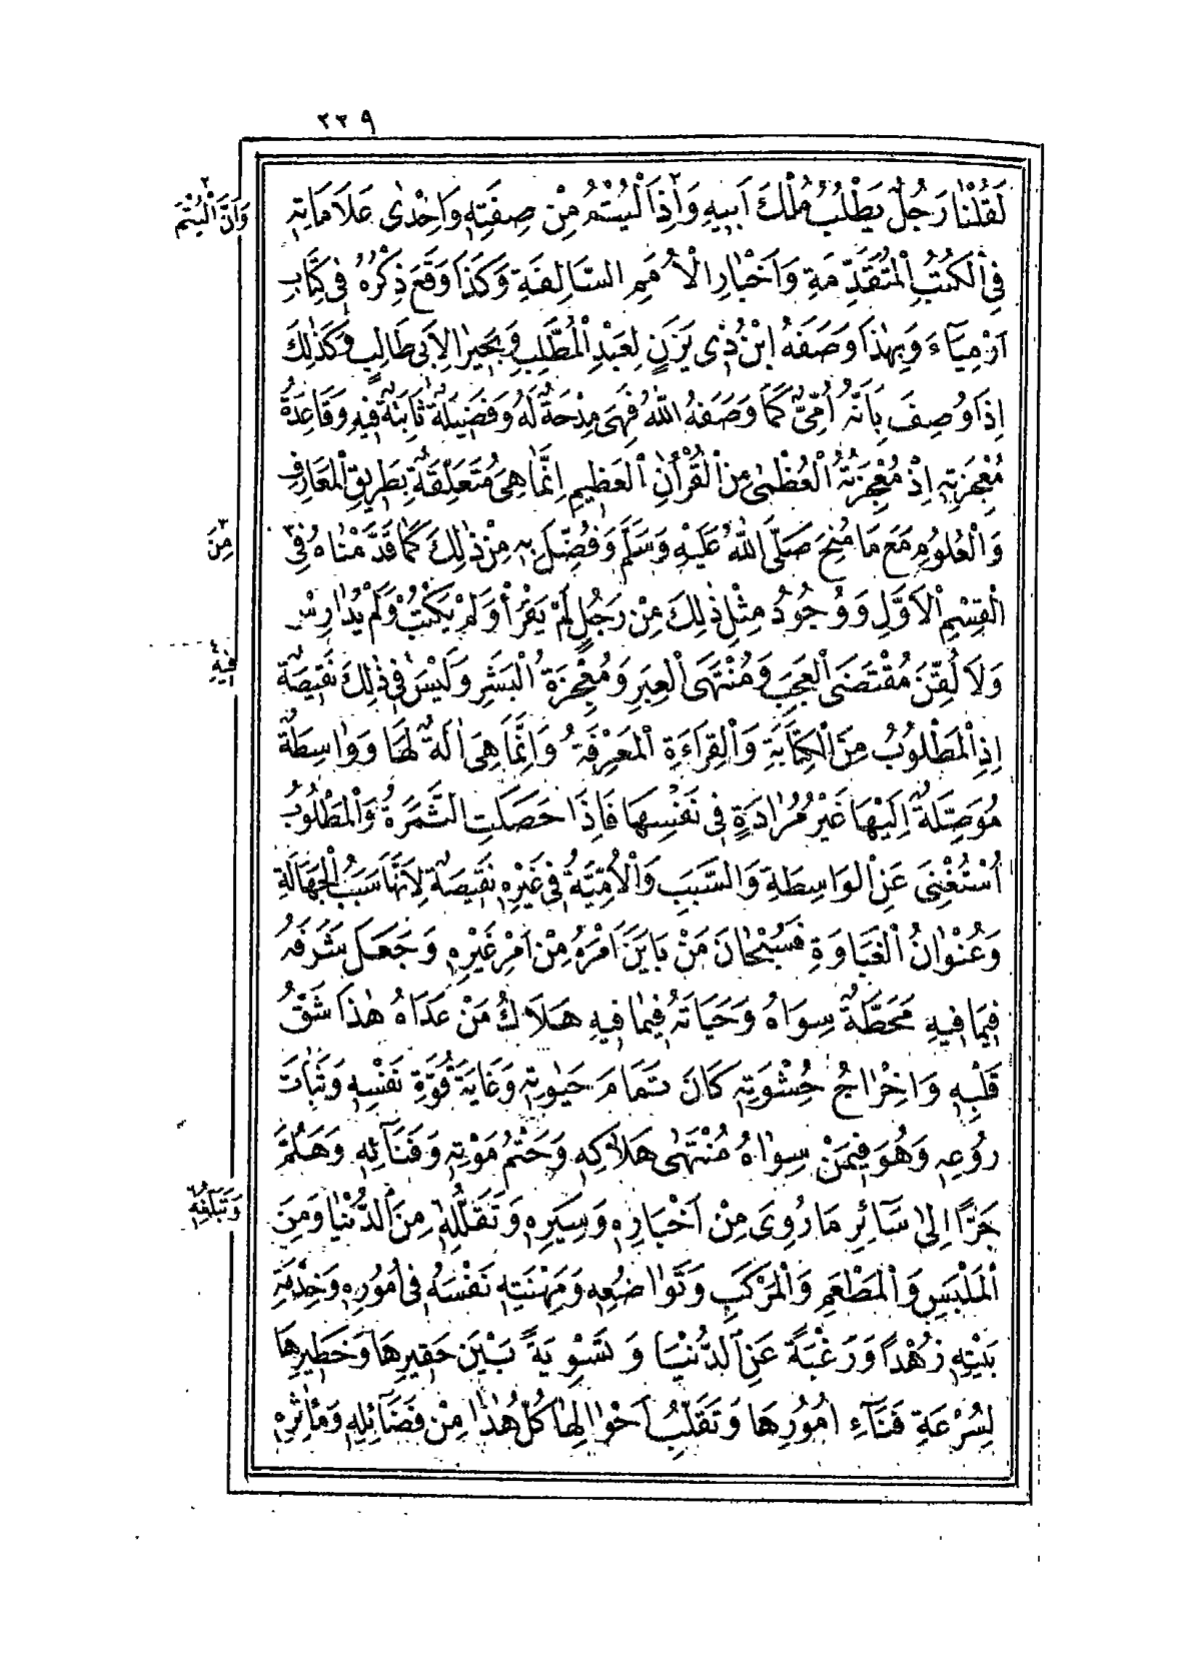 ٢٣٩
لَقُلْنَا رَجُلٌ يَطْلُبُ مُلْكَ اَبِيهِ وَاِذِ الْيُتْمُ مِنْ صِفَتِهِ وَاِحْدٰى عَلَامَاتِهِ
فِى الْكُتُبِ الْمُتَقَدِّمَةِ وَاَخْبَارِ الْاُمَمِ السَّالِفَةِ وَكَذَا وَقَعَ ذِكْرُهُ فِى كِتَابِ
اَرْمِيَاءَ وَبِهٰذَا وَصَفَهُ ابْنُ ذِى يَزَنٍ لِعَبْدِ الْمُطَّلِبِ وَبَحِيرَا لِاَبِى طَالِبٍ وَكَذٰلِكَ
اِذَا وُصِفَ بِاَنَّهُ اُمِّىٌّ كَمَا وَصَفَهُ اللّٰهُ فَهِىَ مِدْحَةٌ لَهُ وَفَضِيلَةٌ ثَابِتَةٌ فِيهِ وَقَاعِدَةُ
مُعْجِزَتِهِ اِذْ مُعْجِزَتُهُ الْعُظْمٰى مِنَ الْقُرْاٰنِ الْعَظِيمِ اِنَّمَا هِىَ مُتَعَلِّقَةٌ بِطَرِيقِ الْمَعَارِفِ
وَالْعُلُومِ مَعَ مَا مُنِحَ صَلَّى اللّٰهُ عَلَيْهِ وَسَلَّمَ وَفُضِّلَ بِهِ مِنْ ذٰلِكَ كَمَا قَدَّمْنَاهُ فِى
الْقِسْمِ الْاَوَّلِ وَوُجُودُ مِثْلِ ذٰلِكَ مِنْ رَجُلٍ لَمْ يَقْرَأْ وَلَمْ يَكْتُبْ وَلَمْ يُدَارِسْ
وَلَا لُقِّنَ مُقْتَضَى الْعَجَبِ وَمُنْتَهَى الْعِبَرِ وَمُعْجِزَةُ الْبَشَرِ وَلَيْسَ فِى ذٰلِكَ نَقِيصَةٌ
اِذِ الْمَطْلُوبُ مِنَ الْكِتَابَةِ وَالْقِرَاءَةِ الْمَعْرِفَةُ وَاِنَّمَا هِىَ اٰلَةٌ لَهَا وَوَاسِطَةٌ
مُوَصِّلَةٌ اِلَيْهَا غَيْرُ مُرَادَةٍ فِى نَفْسِهَا فَاِذَا حَصَلَتِ الثَّمَرَةُ وَالْمَطْلُوبُ
اُسْتُغْنِىَ عَنِ الْوَاسِطَةِ وَالسَّبَبِ وَالْاُمِّيَّةُ فِى غَيْرِهِ نَقِيصَةٌ لِاَنَّهَا سَبَبُ الْجَهَالَةِ
وَعُنْوَانُ الْغَبَاوَةِ فَسُبْحَانَ مَنْ بَايَنَ اَمْرَهُ مِنْ اَمْرِ غَيْرِهِ وَجَعَلَ شَرَفَهُ
فِيمَا فِيهِ مَحَطَّةُ سِوَاهُ وَحَيَاتَهُ فِيمَا فِيهِ هَلَاكُ مَنْ عَدَاهُ هٰذَا شَقُّ
قَلْبِهِ وَاِخْرَاجُ حُشْوَتِهِ كَانَ تَمَامَ حَيٰوتِهِ وَغَايَةَ قُوَّةِ نَفْسِهِ وَثَبَاتَ
رُوعِهِ وَهُوَ فِيمَنْ سِوَاهُ مُنْتَهٰى هَلَاكِهِ وَحَتْمُ مَوْتِهِ وَفَنَائِهِ وَهَلُمَّ
جَرًّا اِلٰى سَائِرِ مَا رُوِىَ مِنْ اَخْبَارِهِ وَسِيَرِهِ وَتَقَلُّلِهِ مِنَ الدُّنْيَا وَمِنَ
الْمَلْبَسِ وَالْمَطْعَمِ وَالْمَرْكَبِ وَتَوَاضُعِهِ وَمِهْنَتِهِ نَفْسَهُ فِى اُمُورِهِ وَخِدْمَةِ
بَيْتِهِ زُهْدًا وَرَغْبَةً عَنِ الدُّنْيَا وَتَسْوِيَةً بَيْنَ حَقِيرِهَا وَخَطِيرِهَا
لِسُرْعَةِ فَنَاءِ اُمُورِهَا وَتَقَلُّبِ اَحْوَالِهَا كُلُّ هٰذَا مِنْ فَضَائِلِهِ وَمَاٰثِرِهِ
٢ وَاَنَّ الْيُتْمَ
٣ مِنَ
٤ فِيهِ